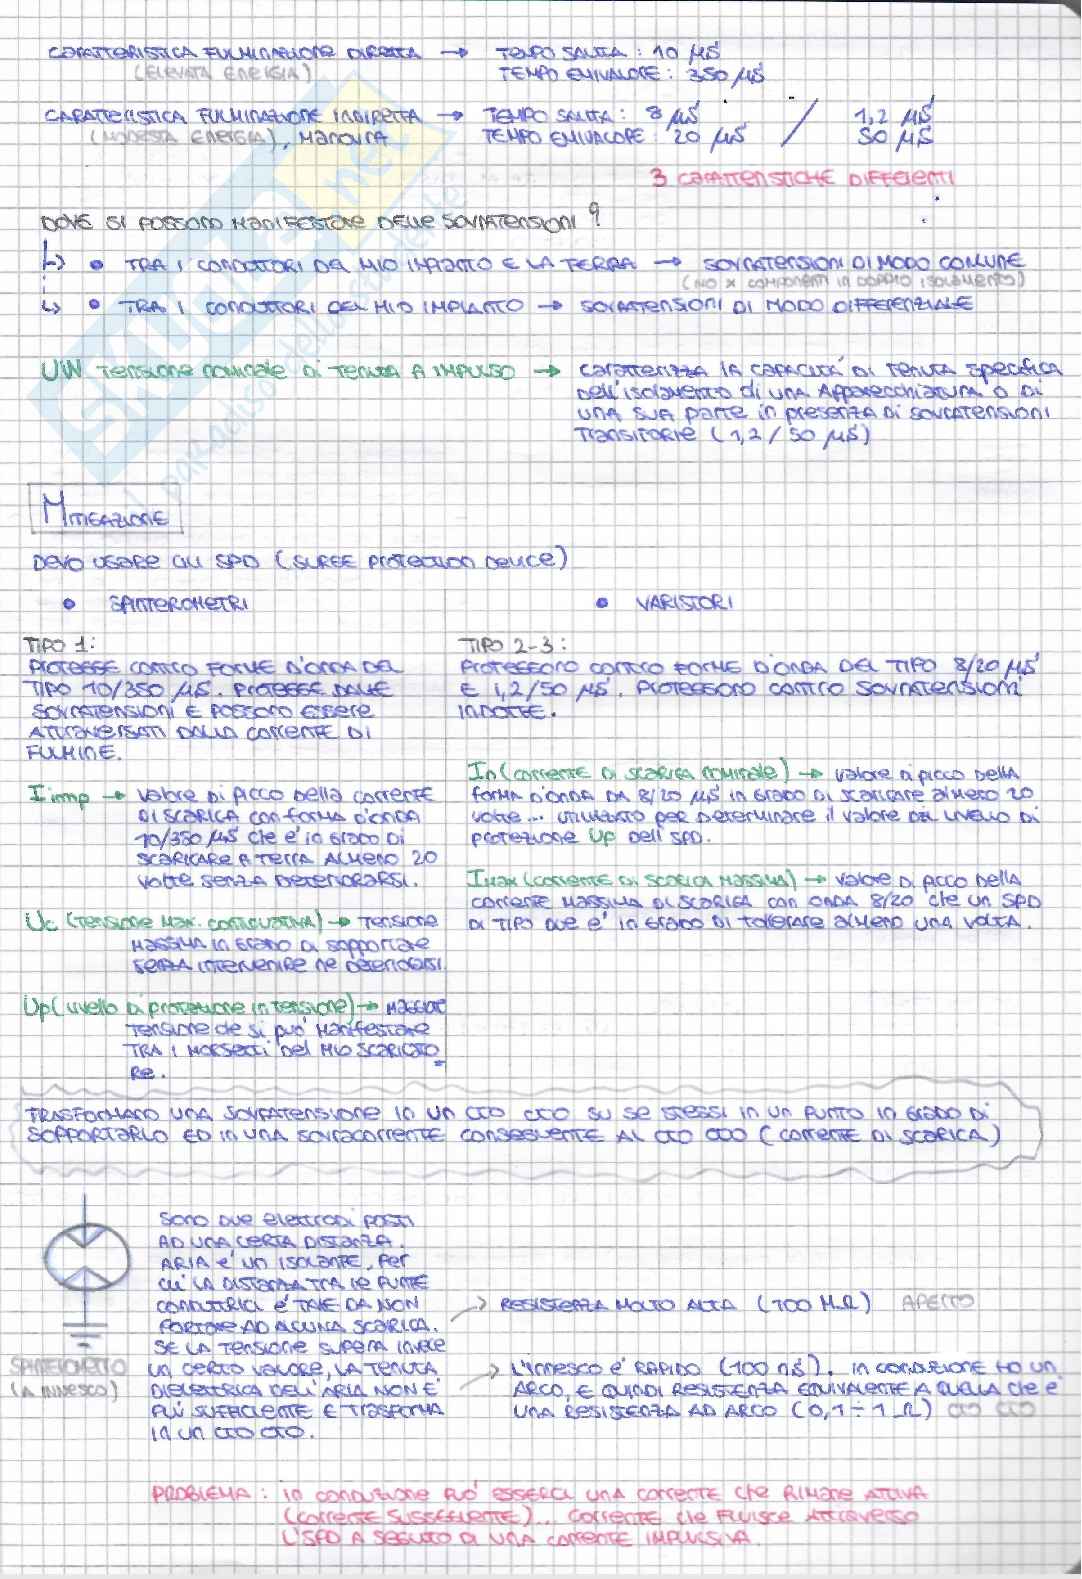 CARATTERISTICA FULMINAZIONE DIRETTA → TEMPO SALITA : 10 µS
(ELEVATA ENERGIA) TEMPO EMIVALORE : 350 µS
CARATTERISTICA FULMINAZIONE INDIRETTA → TEMPO SALITA : 8 µS / 1,2 µS
(MODESTA ENERGIA), MANOVRA TEMPO EMIVALORE : 20 µS 50 µS
3 CARATTERISTICHE DIFFERENTI
DOVE SI POSSONO MANIFESTARE DELLE SOVRATENSIONI ?
↳ • TRA I CONDUTTORI DEL MIO IMPIANTO E LA TERRA → SOVRATENSIONI DI MODO COMUNE
(NO X COMPONENTI IN DOPPIO ISOLAMENTO)
↳ • TRA I CONDUTTORI DEL MIO IMPIANTO → SOVRATENSIONI DI MODO DIFFERENZIALE
UW TENSIONE NOMINALE DI TENUTA A IMPULSO → CARATTERIZZA LA CAPACITÀ DI TENUTA SPECIFICA
DELL'ISOLAMENTO DI UNA APPARECCHIATURA O DI
UNA SUA PARTE IN PRESENZA DI SOVRATENSIONI
TRANSITORIE (1,2 / 50 µS)
MITIGAZIONE
DEVO USARE GLI SPD (SURGE PROTECTION DEVICE)
• SPINTEROMETRI • VARISTORI
TIPO 1:
PROTEGGE CONTRO FORME D'ONDA DEL
TIPO 10/350 µS. PROTEGGE DALLE
SOVRATENSIONI E POSSONO ESSERE
ATTRAVERSATI DALLA CORRENTE DI
FULMINE.
I imp → VALORE DI PICCO DELLA CORRENTE
DI SCARICA CON FORMA D'ONDA
10/350 µS CHE E' IN GRADO DI
SCARICARE A TERRA ALMENO 20
VOLTE SENZA DETERIORARSI.
Uc (TENSIONE MAX. CONTINUATIVA) → TENSIONE
MASSIMA IN GRADO DI SOPPORTARE
SENZA INTERVENIRE NE DETERIORARSI.
Up (LIVELLO DI PROTEZIONE IN TENSIONE) → MAGGIORE
TENSIONE CHE SI PUO' MANIFESTARE
TRA I MORSETTI DEL MIO SCARICATO
RE.
TIPO 2-3 :
PROTEGGONO CONTRO FORME D'ONDA DEL TIPO 8/20 µS
E 1,2/50 µS. PROTEGGONO CONTRO SOVRATENSIONI
INDOTTE.
In (CORRENTE DI SCARICA NOMINALE) → VALORE DI PICCO DELLA
FORMA D'ONDA DA 8/20 µS IN GRADO DI SCARICARE ALMENO 20
VOLTE... UTILIZZATO PER DETERMINARE IL VALORE DEL LIVELLO DI
PROTEZIONE Up DELL'SPD.
Imax (CORRENTE DI SCARICA MASSIMA) → VALORE DI PICCO DELLA
CORRENTE MASSIMA DI SCARICA CON ONDA 8/20 CHE UN SPD
DI TIPO DUE E' IN GRADO DI TOLLERARE ALMENO UNA VOLTA.
TRASFORMANO UNA SOVRATENSIONE IN UN CTO CTO SU SE STESSI IN UN PUNTO IN GRADO DI
SOPPORTARLO ED IN UNA SOVRACORRENTE CONSEGUENTE AL CTO CTO (CORRENTE DI SCARICA)
SPINTEROMETRO
(A INNESCO)
SONO DUE ELETTRODI POSTI
AD UNA CERTA DISTANZA.
ARIA E' UN ISOLANTE, PER
CUI LA DISTANZA TRA LE PUNTE
CONDUTTRICI E' TALE DA NON
PORTARE AD ALCUNA SCARICA.
SE LA TENSIONE SUPERA INVECE
UN CERTO VALORE, LA TENUTA
DIELETTRICA DELL'ARIA NON E'
PIU' SUFFICIENTE E TRASFORMA
IN UN CTO CTO.
→ RESISTENZA MOLTO ALTA (100 MΩ) APERTO
→ L'INNESCO E' RAPIDO (100 nS). IN CONDUZIONE HO UN
ARCO, E QUINDI RESISTENZA EQUIVALENTE A QUELLA CHE E'
UNA RESISTENZA AD ARCO (0,1 ÷ 1 Ω) CTO CTO
PROBLEMA : IN CONDUZIONE PUO' ESSERCI UNA CORRENTE CHE RIMANE ATTIVA
(CORRENTE SUSSEGUENTE)... CORRENTE CHE FLUISCE ATTRAVERSO
L'SPD A SEGUITO DI UNA CORRENTE IMPULSIVA.
SKUOLA.net
il paradiso dello studente